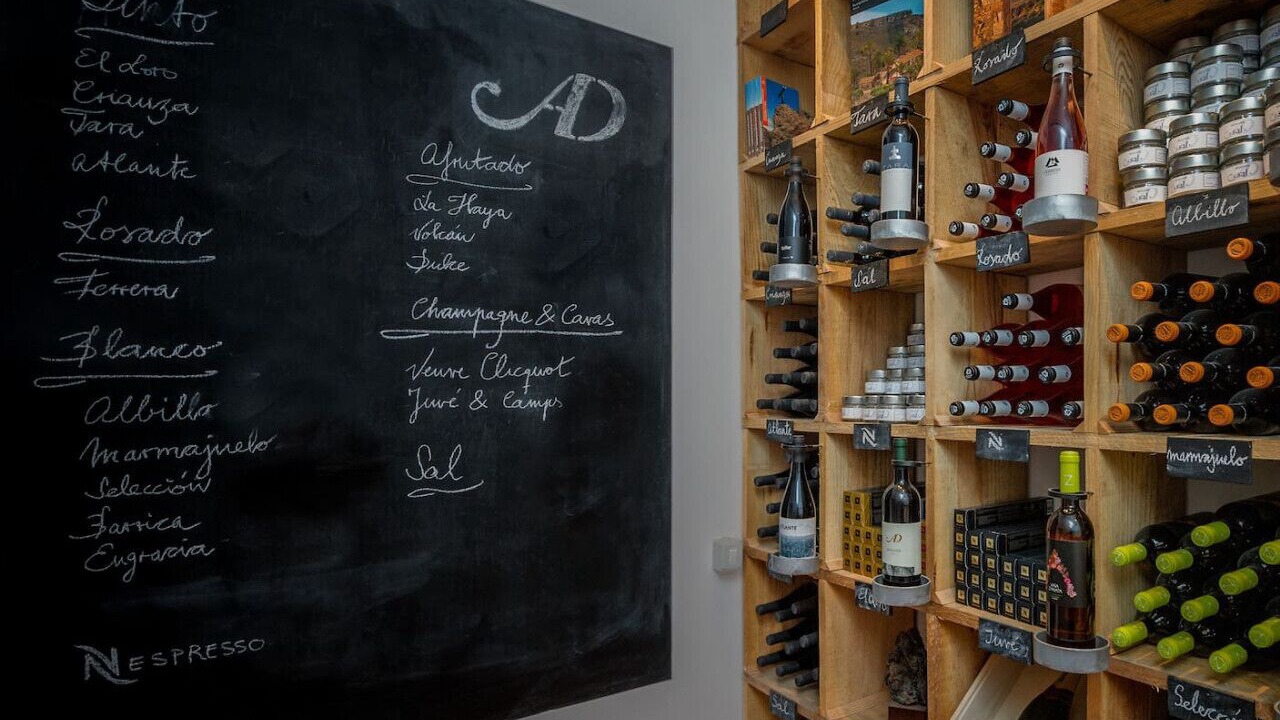 Tinto
El Loro
Crianza
Tara
Atlante
Rosado
Ferrera
Blanco
Albillo
Marmajuelo
Selección
Barrica
Engracia
NESPRESSO
AD
Afrutado
La Haya
Volcán
Dulce
Champagne & Cavas
Veuve Clicquot
Juvé & Camps
Sal
Crianza
Tara
Rosado
TARA
Albillo
Crianza
Sal
Rosado
Atlante
N
N
Marmajuelo
ATLANTE
AD
Z
Juvé
Sal
Selección